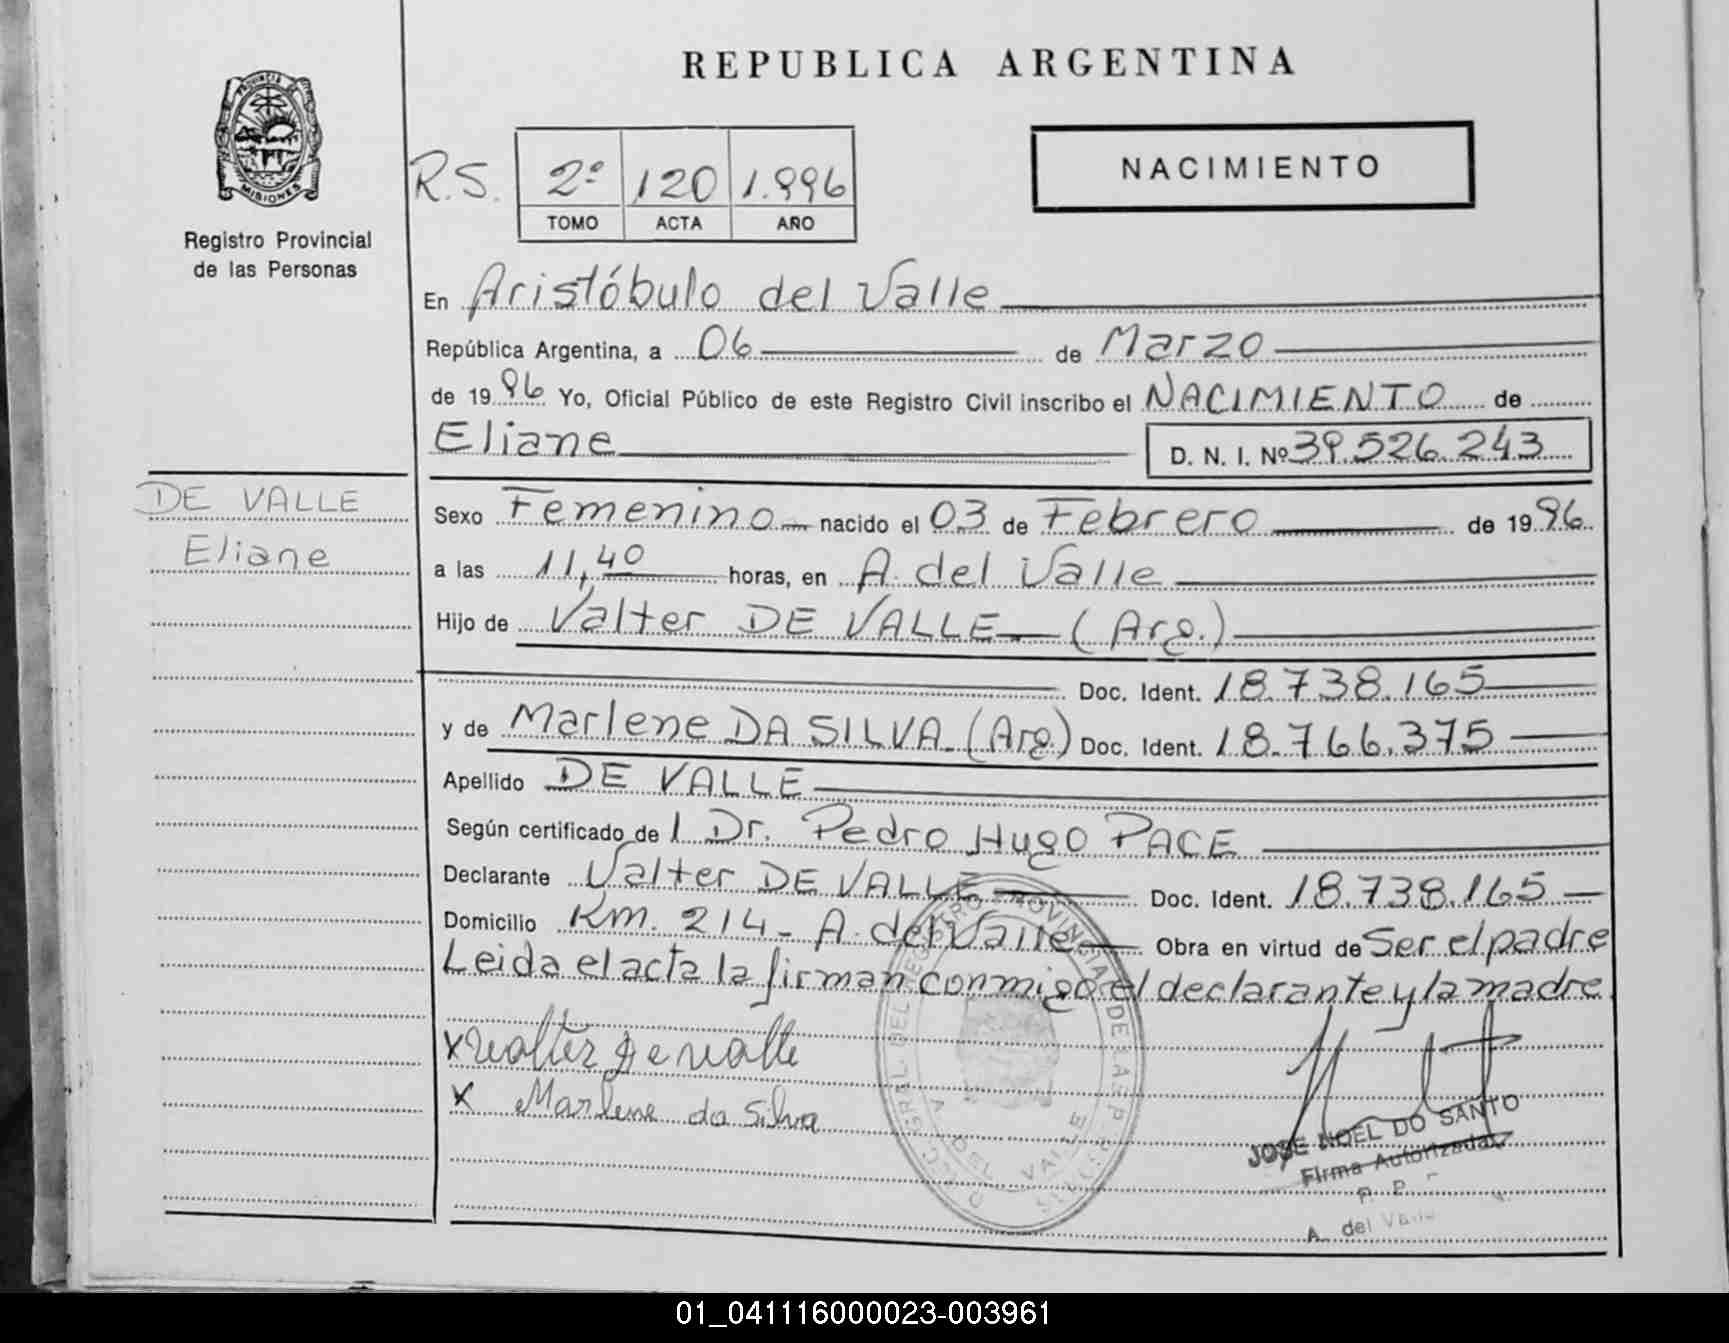 REPUBLICA ARGENTINA
PROVINCIA DE
MISIONES
Registro Provincial
de las Personas
R.S. 2º 120 1.996
TOMO ACTA AÑO
NACIMIENTO
En Aristóbulo del Valle
República Argentina, a 06 de Marzo
de 1996 Yo, Oficial Público de este Registro Civil inscribo el NACIMIENTO de
Eliane D. N. I. Nº 39.526.243
DE VALLE
Eliane
Sexo Femenino nacido el 03 de Febrero de 1996
a las 11,40 horas, en A. del Valle
Hijo de Valter DE VALLE (Arg.)
Doc. Ident. 18.738.165
y de Marlene DA SILVA (Arg.) Doc. Ident. 18.766.375
Apellido DE VALLE
Según certificado de l Dr. Pedro Hugo PACE
Declarante Valter DE VALLE Doc. Ident. 18.738.165
Domicilio Km. 214 - A. del Valle Obra en virtud de Ser el padre
Leida el acta la firman conmigo el declarante y la madre
x Valter De valle
x Marlene da Silva
JOSE NOEL DO SANTO
Firma Autorizada
A. del Valle
01_041116000023-003961